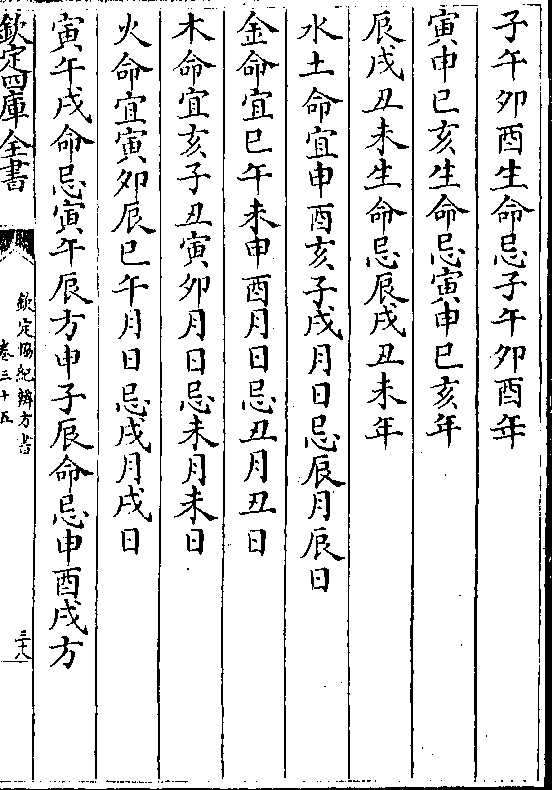 子午卯酉生命忌子午卯酉年
寅申巳亥生命忌寅申巳亥年
辰戌丑未生命忌辰戌丑未年
水土命宜申酉亥子戌月日忌辰月辰日
金命宜巳午未申酉月日忌丑月丑日
木命宜亥子丑寅卯月日忌未月未日
火命宜寅卯辰巳午月日忌戌月戌日
寅午戌命忌寅午辰方申子辰命忌申酉戌方
欽定四庫全書
欽定協紀辨方書
卷三十五
三十八